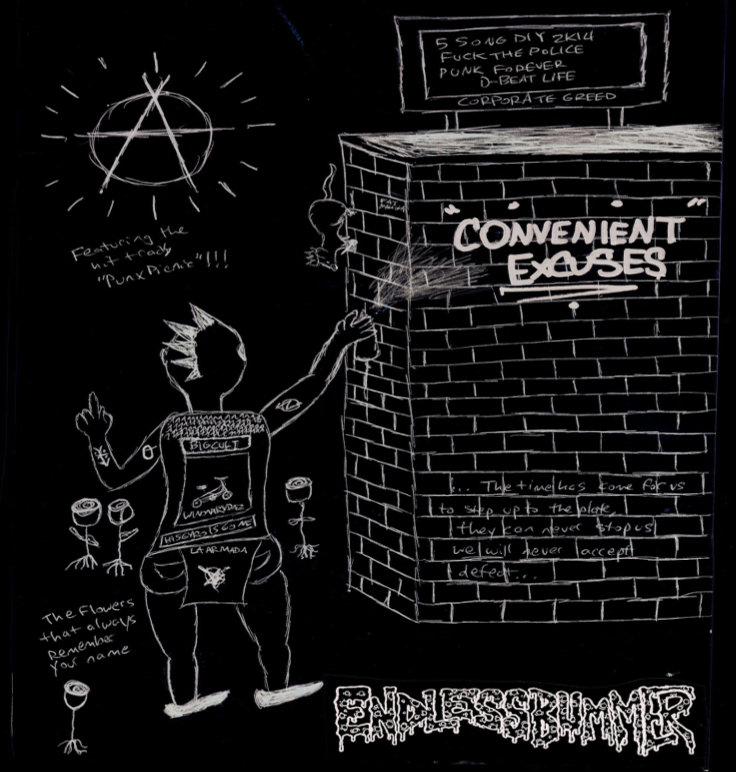 5 SONG DIY 2K14
FUCK THE POLICE
PUNK FOREVER
D-BEAT LIFE
CORPORATE GREED
Featuring the
hit track
"Punx Picnic"!!!
"CONVENIENT
EXCUSES"
BIG CULT
LA ARMADA
... The time has come for us
to step up to the plate,
they can never stop us
we will never accept
defeat...
The Flowers
that always
Remember
Your name
ENDLESSBUMMER